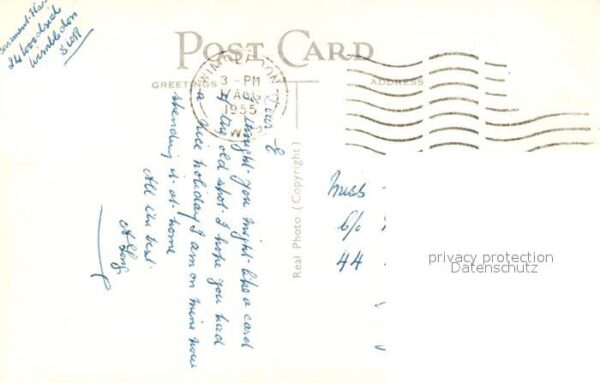 24 Woodside
Wimbledon
SW19
POST CARD
GREETINGS
ADDRESS
WIMBLEDON
3 - PM
AUG
1955
S.W.
Dear E
I thought you might like a card
of the old spot. I hope you had
a nice holiday I am on mine now
spending it at home
All the best.
Real Photo (Copyright)
Miss
C/o
44
privacy protection
Datenschutz